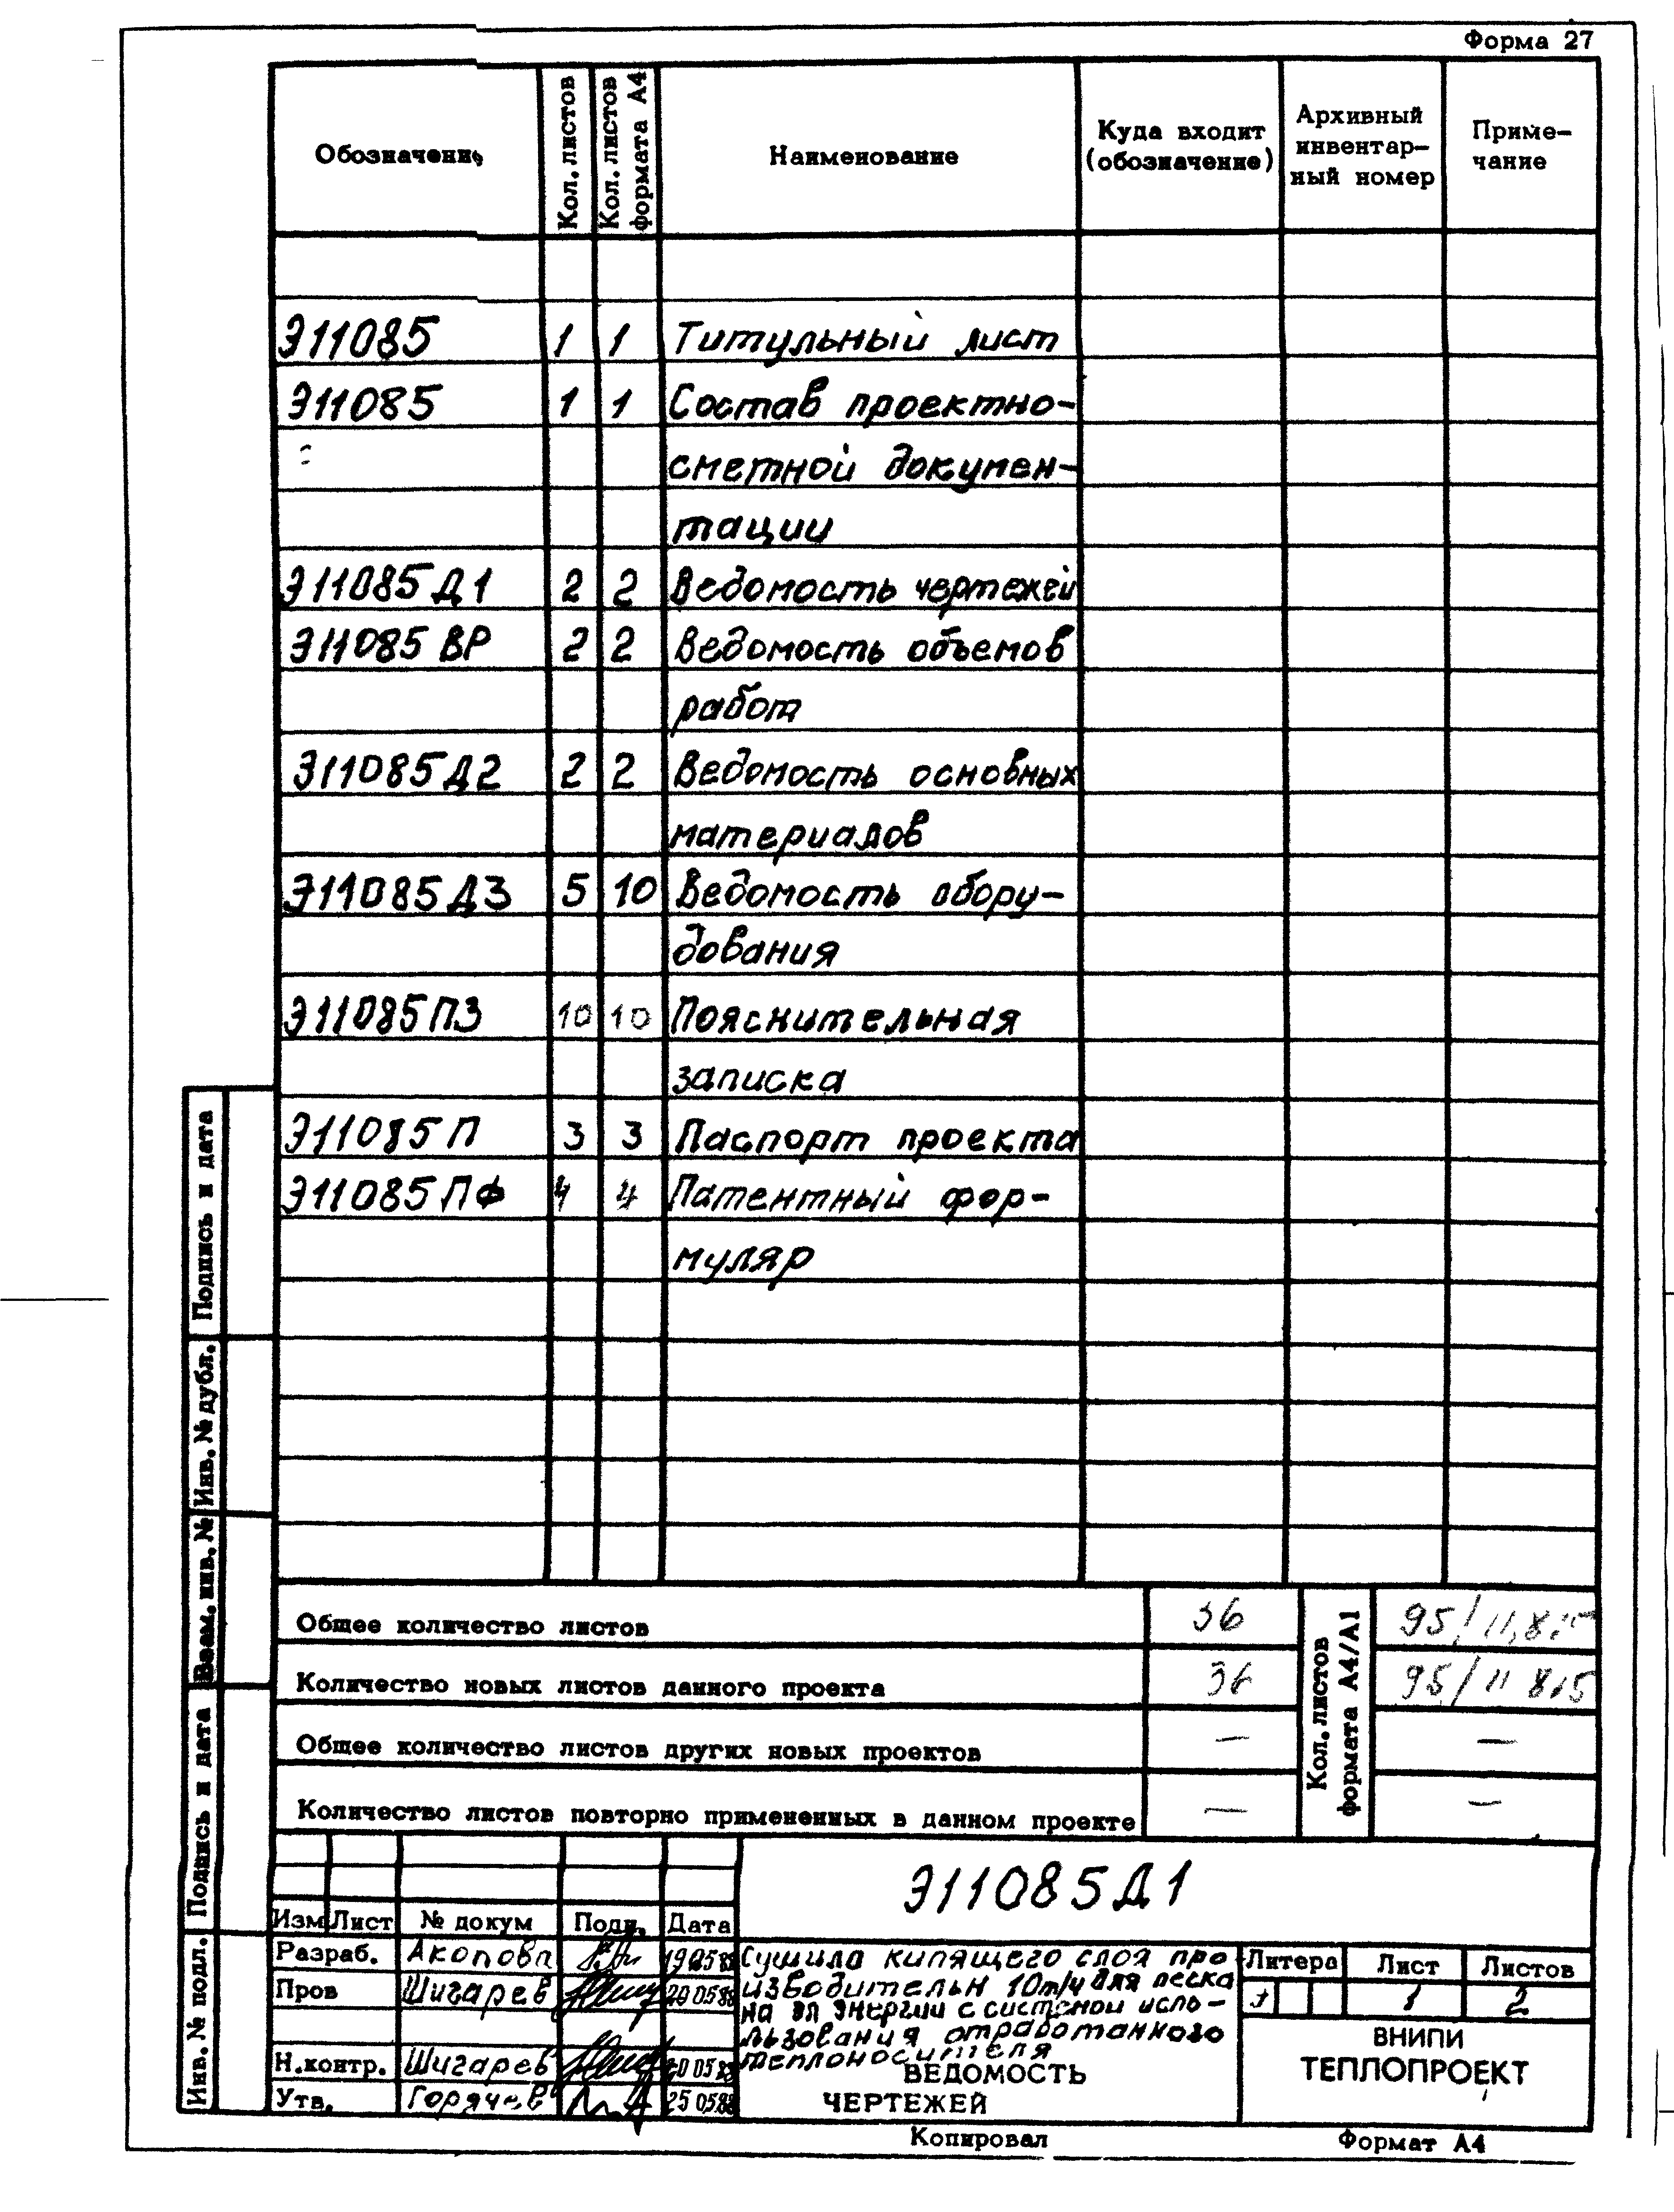 Форма 27
Обозначение
Кол. листов
Кол. листов
формата А4
Наименование
Куда входит
(обозначение)
Архивный
инвентар-
ный номер
Приме-
чание
Э11085 1 1 Титульный лист
Э11085 1 1 Состав проектно-
сметной докумен-
тации
Э11085 Д1 2 2 Ведомость чертежей
Э11085 ВР 2 2 Ведомость объемов
работ
Э11085 Д2 2 2 Ведомость основных
материалов
Э11085 Д3 5 10 Ведомость обору-
дования
Э11085 ПЗ 10 10 Пояснительная
записка
Э11085 П 3 3 Паспорт проекта
Э11085 ПФ 4 4 Патентный фор-
муляр
Подпись и дата
Инв. № дубл.
Взам. инв. №
Подпись и дата
Инв. № подл.
Общее количество листов 36
Количество новых листов данного проекта 36
Общее количество листов других новых проектов —
Количество листов повторно примененных в данном проекте —
Кол. листов
формата А4/А1
95/11,875
95/11 875
—
—
Э11085 Д1
Изм Лист № докум Подп. Дата
Разраб. Акопова 19.05.88
Пров Шигарев 20 05.88
Н.контр. Шигарев 20 05.88
Утв. Горячев 25 05.88
Сушила кипящего слоя про-
изводительн 10т/ч для песка
на эл энергии с системой исполь-
льзования отработанного
теплоносителя
ВЕДОМОСТЬ
ЧЕРТЕЖЕЙ
Литера Лист Листов
1 2
ВНИПИ
ТЕПЛОПРОЕКТ
Копировал Формат А4